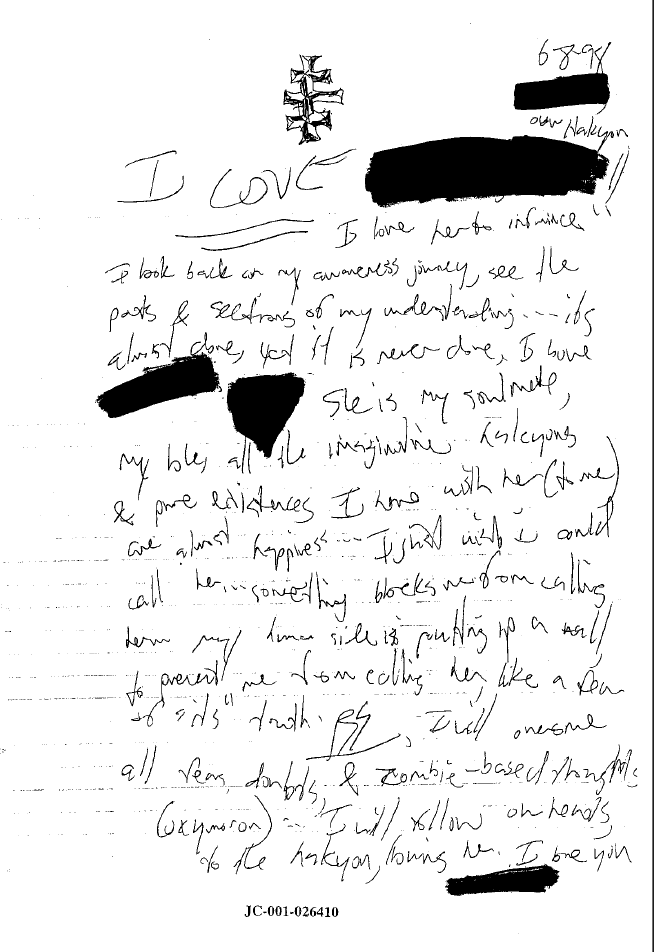 6-8-98
our Halcyon
I LOVE
I love her to infinince"
I look back on my awareness journey, see the
parts & sections of my understanding.... its
almost done, yet it is never done, I love
She is my soulmate,
my all the imaginative halcyons
& pure existences I have with her (to me)
are almost happiness... I just wish I could
call her... something blocks me from calling
my human side is putting up a wall
to prevent me from calling her, like a fear
of "its" truth. , I will overcome
all fear, doubts, & zombie-based thoughts
(oxymoron) -- I will follow
to the halcyon, loving her. I love you
JC-001-026410